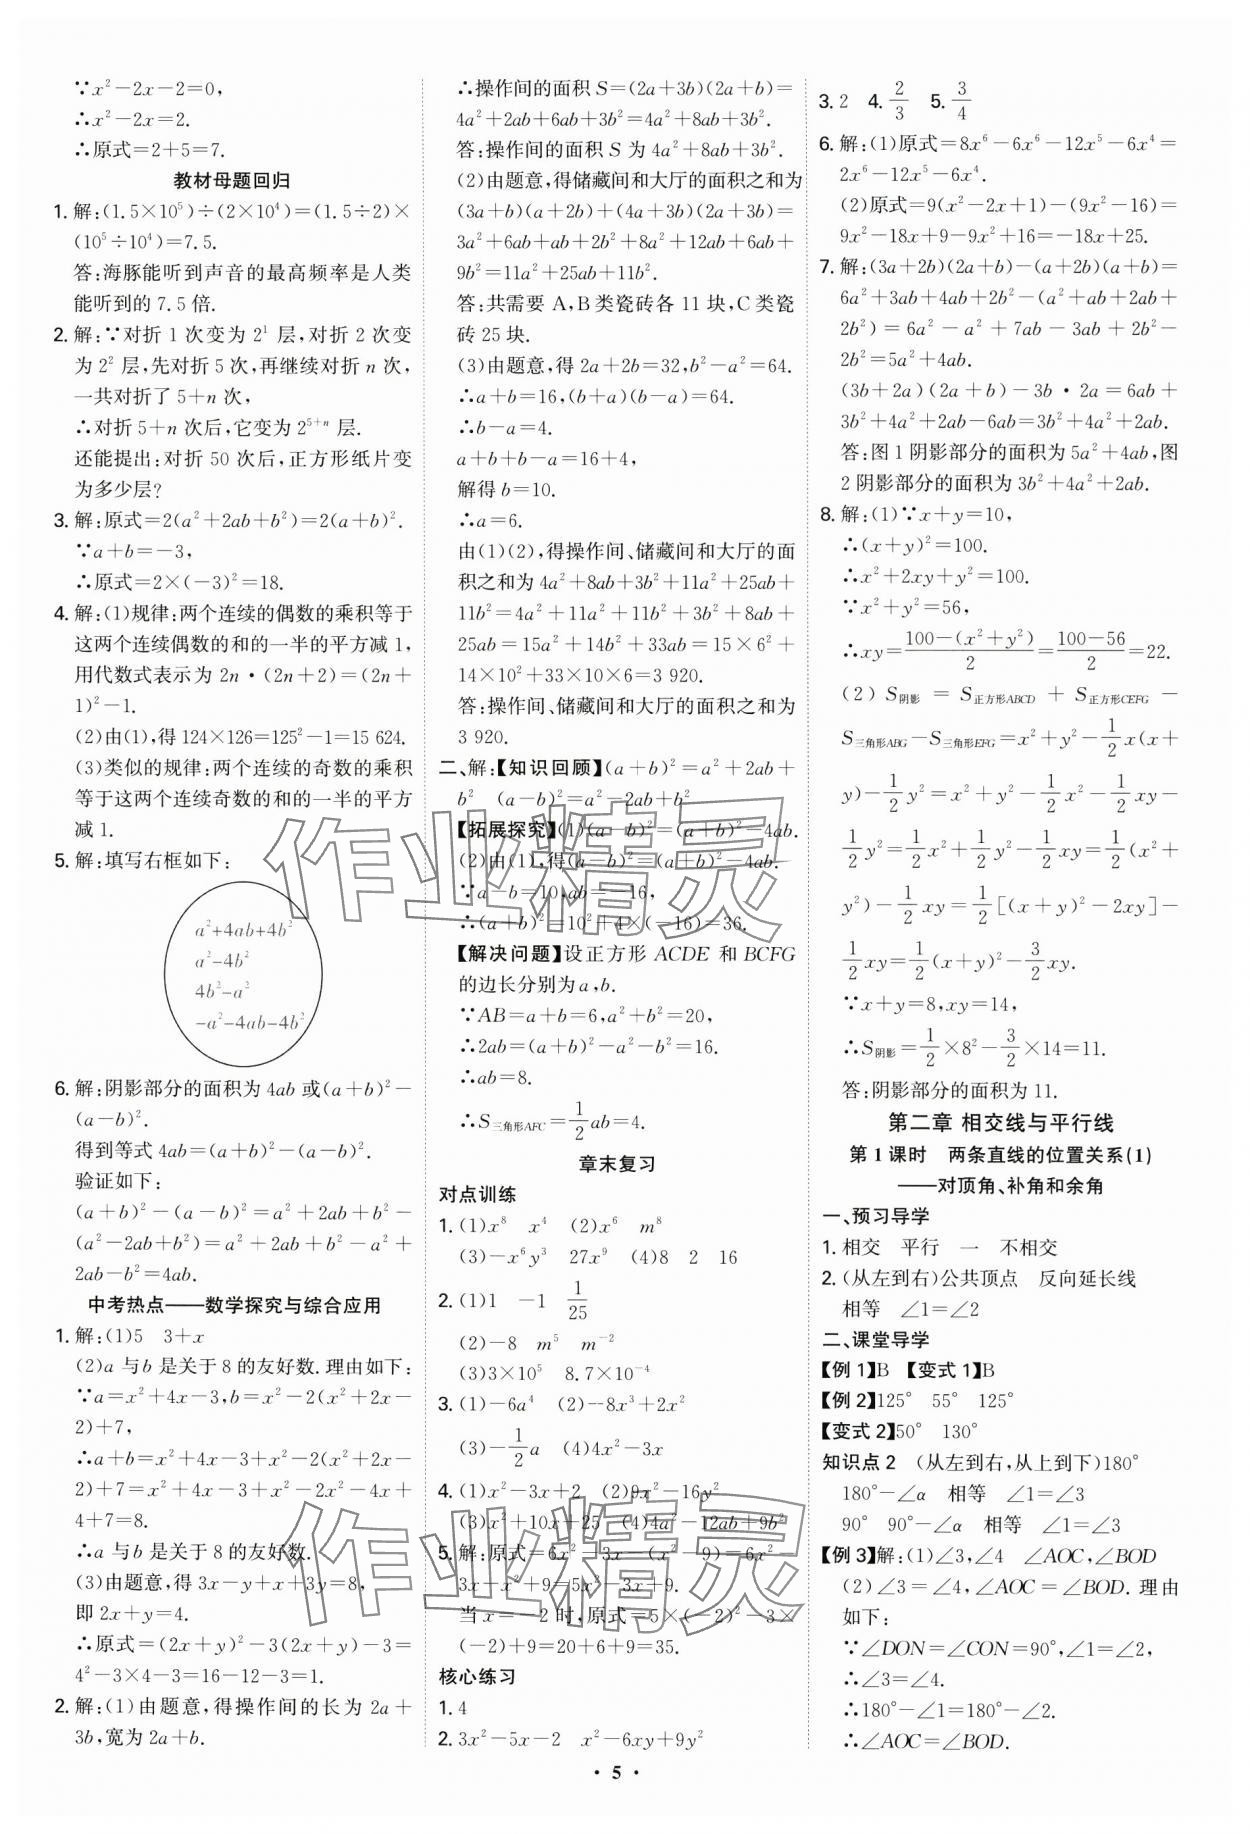 ∵x²－2x－2＝0,
∴x²－2x＝2.
∴原式＝2＋5＝7.
教材母题回归
1. 解:(1.5×10⁵)÷(2×10⁴)＝(1.5÷2)×
(10⁵÷10⁴)＝7.5.
答:海豚能听到声音的最高频率是人类
能听到的 7.5 倍.
2. 解:∵对折 1 次变为 2¹ 层,对折 2 次变
为 2² 层,先对折 5 次,再继续对折 n 次,
一共对折了 5＋n 次,
∴对折 5＋n 次后,它变为 2⁵⁺ⁿ 层.
还能提出:对折 50 次后,正方形纸片变
为多少层?
3. 解:原式＝2(a²＋2ab＋b²)＝2(a＋b)².
∵a＋b＝－3,
∴原式＝2×(－3)²＝18.
4. 解:(1)规律:两个连续的偶数的乘积等于
这两个连续偶数的和的一半的平方减 1,
用代数式表示为 2n·(2n＋2)＝(2n＋
1)²－1.
(2)由(1),得 124×126＝125²－1＝15 624.
(3)类似的规律:两个连续的奇数的乘积
等于这两个连续奇数的和的一半的平方
减 1.
5. 解:填写右框如下:
a²+4ab+4b²
a²-4b²
4b²-a²
-a²-4ab-4b²
6. 解:阴影部分的面积为 4ab 或(a＋b)²－
(a－b)².
得到等式 4ab＝(a＋b)²－(a－b)².
验证如下:
(a＋b)²－(a－b)²＝a²＋2ab＋b²－
(a²－2ab＋b²)＝a²＋2ab＋b²－a²＋
2ab－b²＝4ab.
中考热点——数学探究与综合应用
1. 解:(1)5　3＋x
(2)a 与 b 是关于 8 的友好数. 理由如下:
∵a＝x²＋4x－3,b＝x²－2(x²＋2x－
2)＋7,
∴a＋b＝x²＋4x－3＋x²－2(x²＋2x－
2)＋7＝x²＋4x－3＋x²－2x²－4x＋
4＋7＝8.
∴a 与 b 是关于 8 的友好数.
(3)由题意,得 3x－y＋x＋3y＝8,
即 2x＋y＝4.
∴原式＝(2x＋y)²－3(2x＋y)－3＝
4²－3×4－3＝16－12－3＝1.
2. 解:(1)由题意,得操作间的长为 2a＋
3b,宽为 2a＋b.
∴操作间的面积 S＝(2a＋3b)(2a＋b)＝
4a²＋2ab＋6ab＋3b²＝4a²＋8ab＋3b².
答:操作间的面积 S 为 4a²＋8ab＋3b².
(2)由题意,得储藏间和大厅的面积之和为
(3a＋b)(a＋2b)＋(4a＋3b)(2a＋3b)＝
3a²＋6ab＋ab＋2b²＋8a²＋12ab＋6ab＋
9b²＝11a²＋25ab＋11b².
答:共需要 A,B 类瓷砖各 11 块,C 类瓷
砖 25 块.
(3)由题意,得 2a＋2b＝32,b²－a²＝64.
∴a＋b＝16,(b＋a)(b－a)＝64.
∴b－a＝4.
a＋b＋b－a＝16＋4,
解得 b＝10.
∴a＝6.
由(1)(2),得操作间、储藏间和大厅的面
积之和为 4a²＋8ab＋3b²＋11a²＋25ab＋
11b²＝4a²＋11a²＋11b²＋3b²＋8ab＋
25ab＝15a²＋14b²＋33ab＝15×6²＋
14×10²＋33×10×6＝3 920.
答:操作间、储藏间和大厅的面积之和为
3 920.
二、解:【知识回顾】(a＋b)²＝a²＋2ab＋
b²　(a－b)²＝a²－2ab＋b²
【拓展探究】(1)(a－b)²＝(a＋b)²－4ab.
(2)由(1),得(a－b)²＝(a＋b)²－4ab.
∵a－b＝10,ab＝－16,
∴(a＋b)²＝10²＋4×(－16)＝36.
【解决问题】设正方形 ACDE 和 BCFG
的边长分别为 a,b.
∵AB＝a＋b＝6,a²＋b²＝20,
∴2ab＝(a＋b)²－a²－b²＝16.
∴ab＝8.
∴S三角形AFC＝1/2 ab＝4.
章末复习
对点训练
1. (1)x⁸　x⁴　(2)x⁶　m⁸
(3)－x⁶y³　27x⁹　(4)8　2　16
2. (1)1　－1　1/25
(2)－8　m⁵　m⁻²
(3)3×10⁵　8.7×10⁻⁴
3. (1)－6a⁴　(2)－8x³＋2x²
(3)－1/2 a　(4)4x²－3x
4. (1)x²－3x＋2　(2)9x²－16y²
(3)x²＋10x＋25　(4)4a²－12ab＋9b²
5. 解:原式＝6x²－3x－(x²－9)＝6x²－
3x－x²＋9＝5x²－3x＋9.
当 x＝－2 时,原式＝5×(－2)²－3×
(－2)＋9＝20＋6＋9＝35.
核心练习
1. 4
2. 3x²－5x－2　x²－6xy＋9y²
3. 2　4. 2/3　5. 3/4
6. 解:(1)原式＝8x⁶－6x⁶－12x⁵－6x⁴＝
2x⁶－12x⁵－6x⁴.
(2)原式＝9(x²－2x＋1)－(9x²－16)＝
9x²－18x＋9－9x²＋16＝－18x＋25.
7. 解:(3a＋2b)(2a＋b)－(a＋2b)(a＋b)＝
6a²＋3ab＋4ab＋2b²－(a²＋ab＋2ab＋
2b²)＝6a²－a²＋7ab－3ab＋2b²－
2b²＝5a²＋4ab.
(3b＋2a)(2a＋b)－3b·2a＝6ab＋
3b²＋4a²＋2ab－6ab＝3b²＋4a²＋2ab.
答:图 1 阴影部分的面积为 5a²＋4ab,图
2 阴影部分的面积为 3b²＋4a²＋2ab.
8. 解:(1)∵x＋y＝10,
∴(x＋y)²＝100.
∴x²＋2xy＋y²＝100.
∵x²＋y²＝56,
∴xy＝(100－(x²＋y²))/2＝(100－56)/2＝22.
(2)S阴影＝S正方形ABCD＋S正方形CEFG－
S三角形ABG－S三角形EFG＝x²＋y²－1/2 x(x＋
y)－1/2 y²＝x²＋y²－1/2 x²－1/2 xy－
1/2 y²＝1/2 x²＋1/2 y²－1/2 xy＝1/2 (x²＋
y²)－1/2 xy＝1/2 [(x＋y)²－2xy]－
1/2 xy＝1/2 (x＋y)²－3/2 xy.
∵x＋y＝8,xy＝14,
∴S阴影＝1/2×8²－3/2×14＝11.
答:阴影部分的面积为 11.
第二章 相交线与平行线
第 1 课时　两条直线的位置关系(1)
——对顶角、补角和余角
一、预习导学
1. 相交　平行　一　不相交
2. (从左到右)公共顶点　反向延长线
相等　∠1＝∠2
二、课堂导学
【例 1】B　【变式 1】B
【例 2】125°　55°　125°
【变式 2】50°　130°
知识点 2　(从左到右,从上到下)180°
180°－∠α　相等　∠1＝∠3
90°　90°－∠α　相等　∠1＝∠3
【例 3】解:(1)∠3,∠4　∠AOC,∠BOD
(2)∠3＝∠4,∠AOC＝∠BOD. 理由
如下:
∵∠DON＝∠CON＝90°,∠1＝∠2,
∴∠3＝∠4.
∴180°－∠1＝180°－∠2.
∴∠AOC＝∠BOD.
· 5 ·
作业精灵
作业精灵